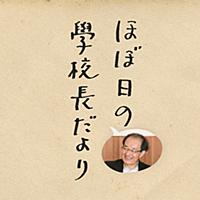 ほぼ日の
學校長だより